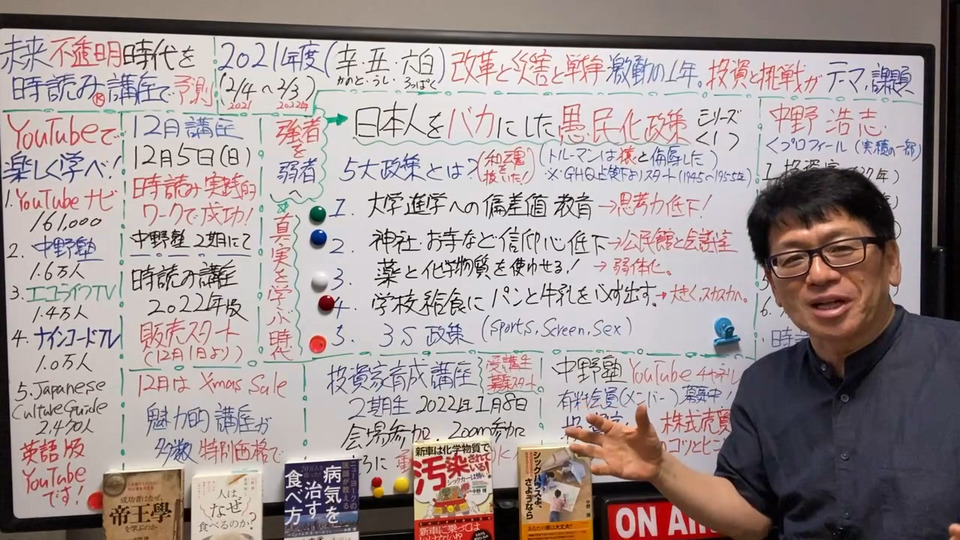 未来不透明時代を
時読み®講座で予測
2021年度(辛・丑・六白)
かのと・うし・ろっぱく
(2/4〜2/3)
2021 2022年
改革と災害と戦争 激動の1年。投資と挑戦がテーマ、課題
YouTubeで
楽しく学べ!
1.YouTubeナビ
161,000
2.中野塾
1.6万人
3.エコライフTV
1.4万人
4.ナインコードTV
1.0万人
5.Japanese
Culture Guide
2.4万人
英語版
YouTube
です!
12月講座
12月5日(日)
時読み実践的
ワークで成功!
中野塾2期にて
時読み講座
2022年版
販売スタート
(12月1日より)
12月はXmas Sale
魅力的講座が
多数 特別価格で
強者を
弱者へ
真実を学ぶ時代
日本人をバカにした愚民化政策 シリーズ
<1>
5大政策とは?
(和魂
抜きだ!)
(トルーマンは猿と侮辱した)
※GHQ占領下よりスタート(1945〜1955年)
1. 大学進学への偏差値教育→思考力低下!
2. 神社お寺など信仰心低下→公民館と会議室
3. 薬と化学物質を使わせる!→弱体化。
4. 学校給食にパンと牛乳を必ず出す。→大きく、スカスカへ。
5. 3S政策(Sports, Screen, Sex)
中野 浩志
<プロフィール(実績の一部)
1.投資家
時
投資家育成講座
受講生
募集スタート。
2期生 2022年1月8日
会場参加、Zoom参加
中野塾YouTubeチャネル
有料会員(メンバー)募集中!
株式売買
のコツとヒ
成功者はなぜ、
帝王學
を学ぶのか
人は
なぜ
食べるのか?
ニューヨークの
医師が教える
病気を
治す
食べ方
新車は化学物質で
汚染されている!
シックカーは怖い
新車に乗っては
いけない!?
シックハウスよ、
さようなら
ON AI